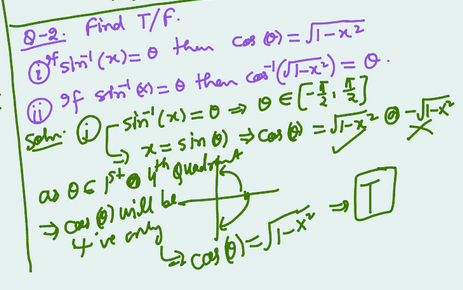 Q-2. Find T/F.
(i) If sin⁻¹(x) = θ then cos(θ) = √(1-x²)
(ii) If sin⁻¹(x) = θ then cos⁻¹(√(1-x²)) = θ.
Soln: (i) sin⁻¹(x) = θ ⇒ θ ∈ [-π/2, π/2]
⇒ x = sin(θ) ⇒ cos(θ) = √(1-x²) or -√(1-x²)
as θ ∈ 1st or 4th Quadrant
⇒ cos(θ) will be
+'ve only
↳ cos(θ) = √(1-x²) ⇒ T